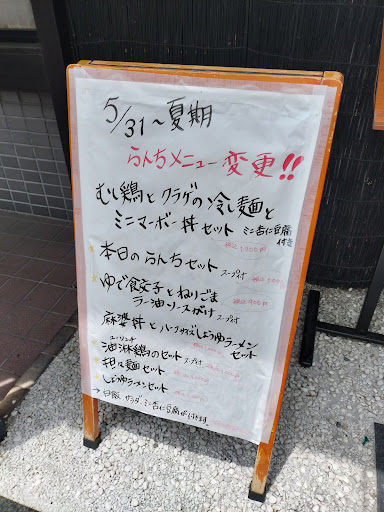 5/31～夏期
らんちメニュー変更!!
むし鶏とクラゲの冷し麺と
ミニマーボー丼セット ミニ杏仁豆腐付き
税込1,000円
本日のらんちセット スープ付
ゆで餃子とねりごま
ラー油ソースがけ スープ付
麻婆丼とハーフサイズしょうゆラーメン
セット
ユーリンチ
油淋鶏のセット スープ付
担々麺セット
しょうゆラーメンセット
→白飯 サラダ ミニ杏仁豆腐が付きます。